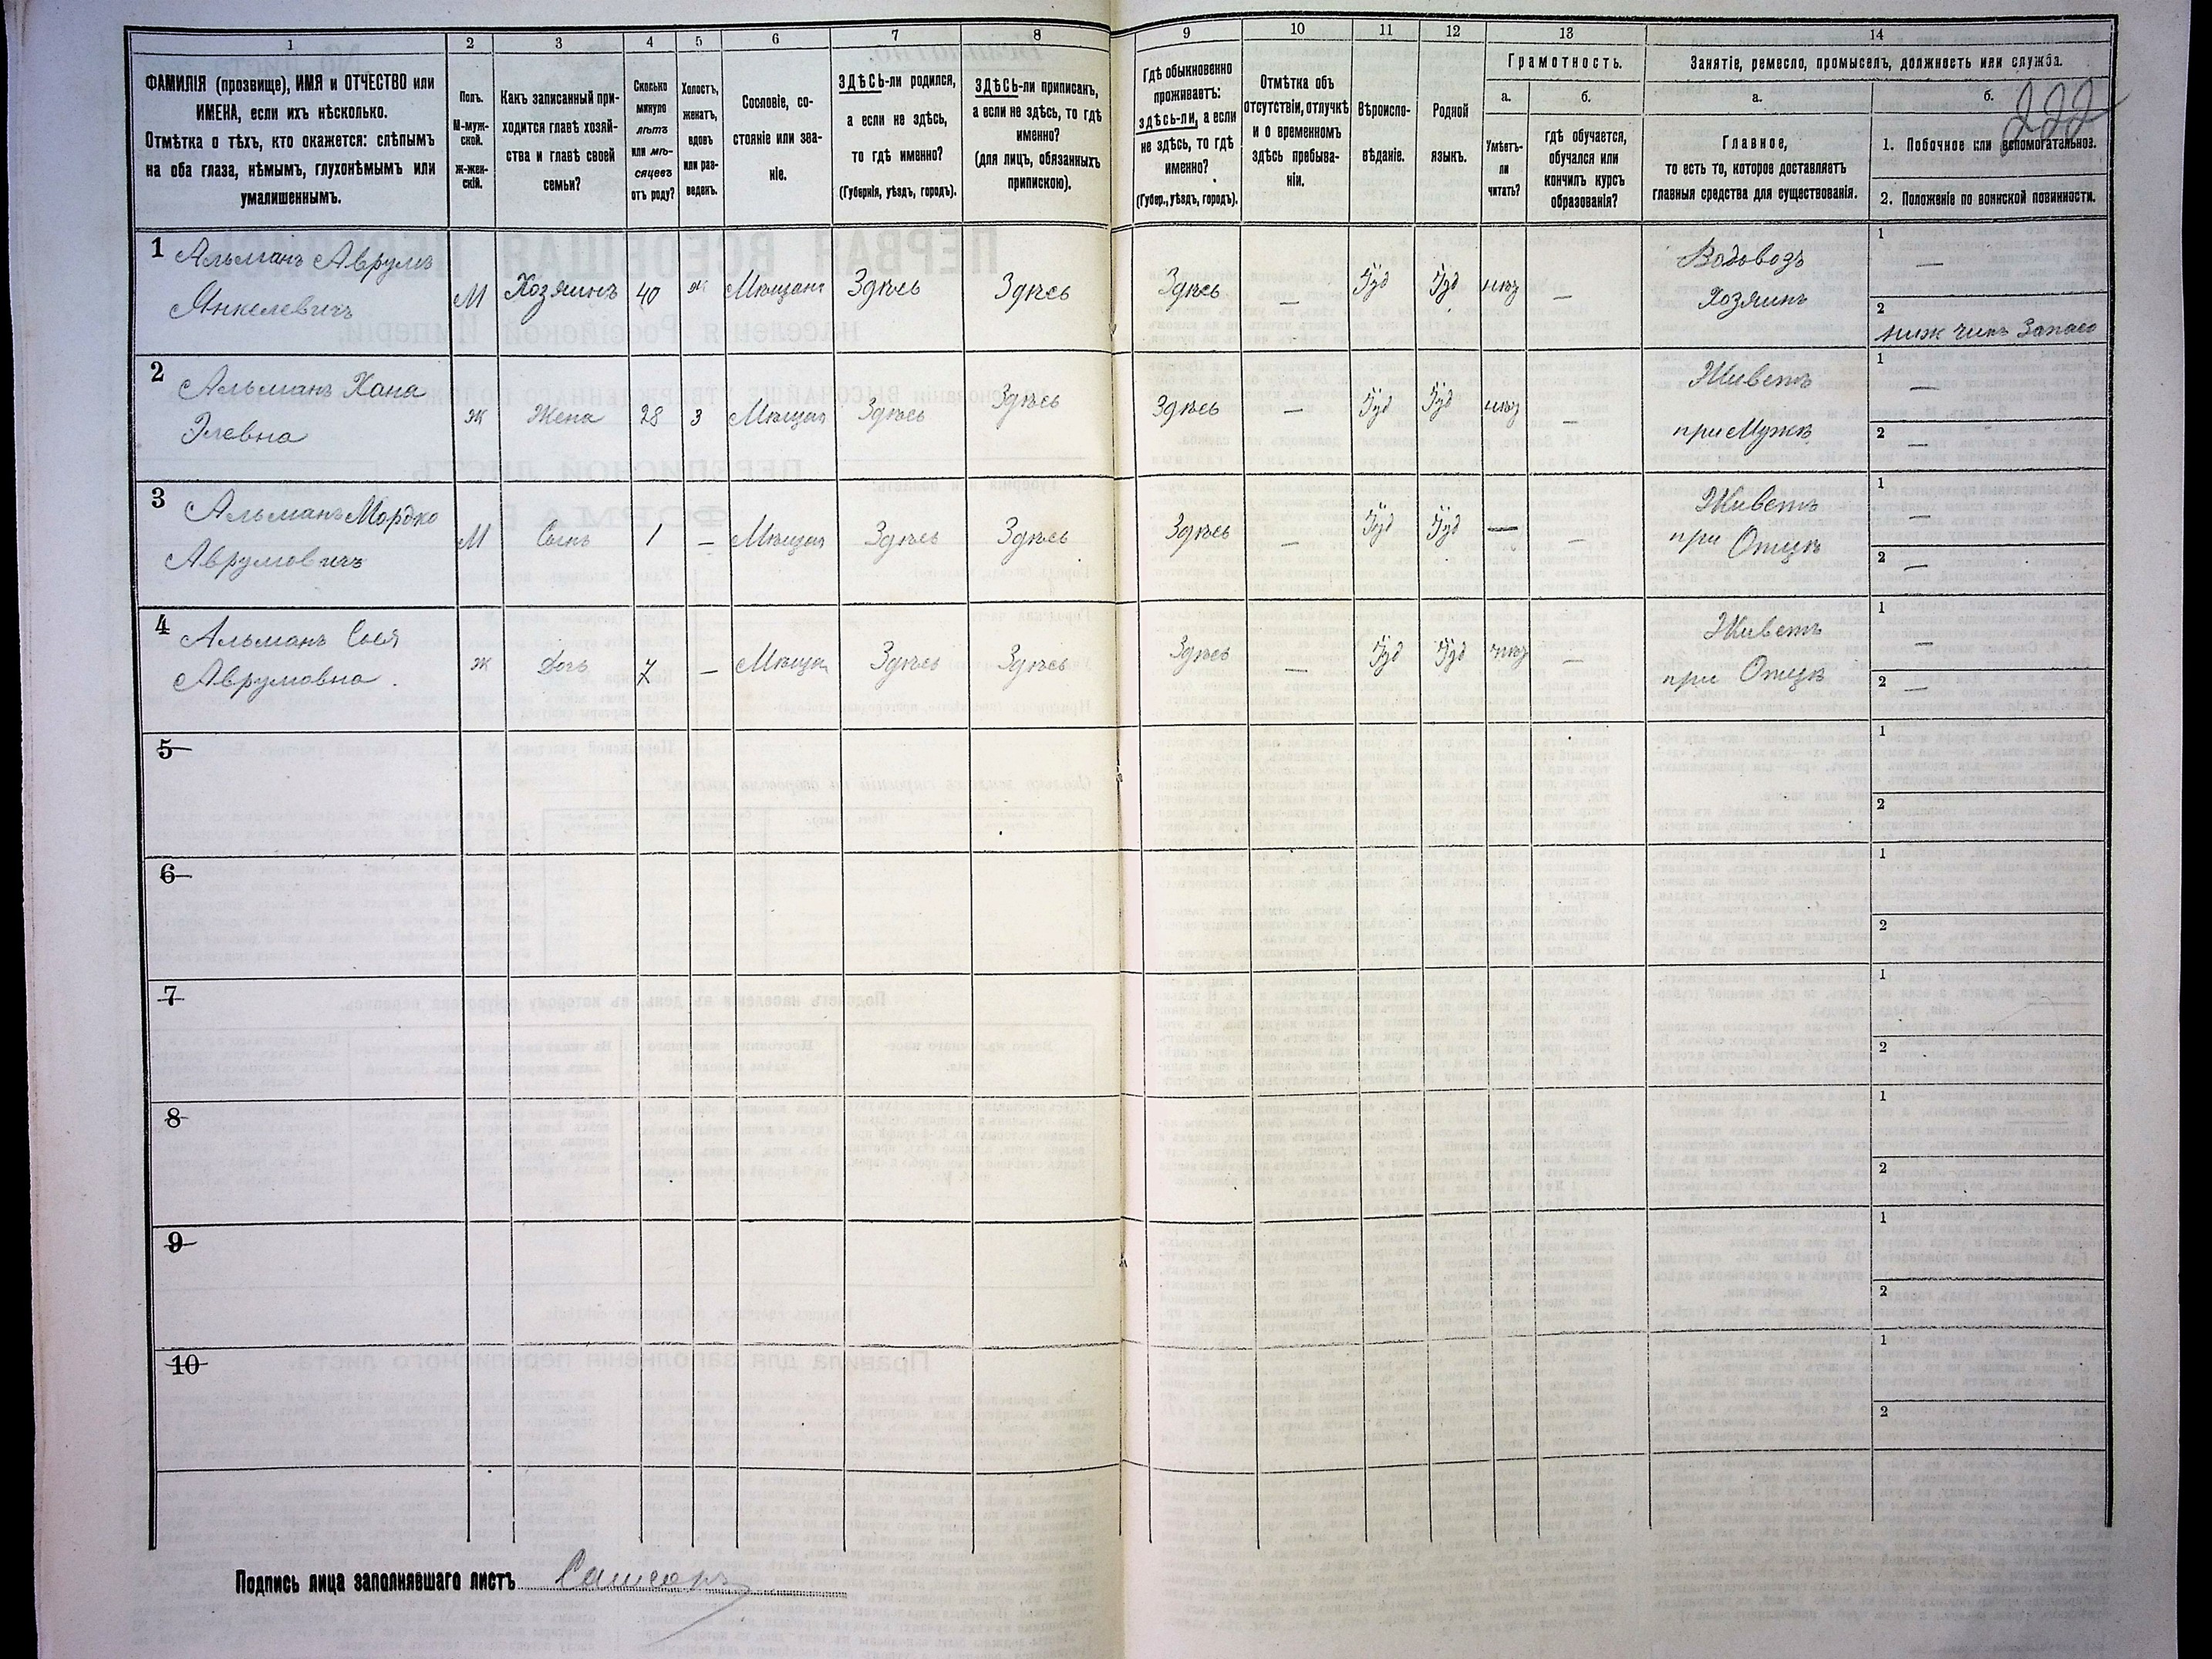 1 2 3 4 5 6 7 8 9 10 11 12 13 14
ФАМИЛІЯ (прозвище), ИМЯ и ОТЧЕСТВО или
ИМЕНА, если ихъ нѣсколько.
Отмѣтка о тѣхъ, кто окажется: слѣпымъ
на оба глаза, нѣмымъ, глухонѣмымъ или
умалишеннымъ.
Полъ.
М-муж-
ской.
ж-жен-
скій.
Какъ записанный при-
ходится главѣ хозяй-
ства и главѣ своей
семьи?
Сколько
минуло
лѣтъ
или мѣ-
сяцевъ
отъ роду?
Холостъ,
женатъ,
вдовъ
или раз-
веденъ.
Сословіе, со-
стояніе или зва-
ніе.
ЗДѢСЬ-ли родился,
а если не здѣсь,
то гдѣ именно?
(Губернія, уѣздъ, городъ).
ЗДѢСЬ-ли приписанъ,
а если не здѣсь, то гдѣ
именно?
(для лицъ, обязанныхъ
припискою).
Гдѣ обыкновенно
проживаетъ:
здѣсь-ли, а если
не здѣсь, то гдѣ
именно?
(Губер., уѣздъ, городъ).
Отмѣтка объ
отсутствіи, отлучкѣ
и о временномъ
здѣсь пребыва-
ніи.
Вѣроиспо-
вѣданіе.
Родной
языкъ.
Грамотность.
а.
Умѣетъ-
ли
читать?
б.
Гдѣ обучается,
обучался или
кончилъ курсъ
образованія?
Занятіе, ремесло, промыселъ, должность или служба.
а.
Главное,
то есть то, которое доставляетъ
главныя средства для существованія.
б.
222
1. Побочное или вспомогательное.
2. Положеніе по воинской повинности.
1 Альманъ Аврумъ
Янкелевичъ
М Хозяинъ 40 ж Здѣсь Здѣсь Здѣсь — Іуд Іуд —
Водовозъ
Хозяинъ
1 —
2
ниж чинъ Запаса
2 Альманъ Хана
Элевна
ж Жена 28 З Здѣсь Здѣсь Здѣсь — Іуд Іуд —
Живетъ
при Мужѣ
1 —
2 —
3 Альманъ Мордко
Аврумовичъ
М Сынъ 1 — Здѣсь Здѣсь Здѣсь — Іуд Іуд — —
Живетъ
при Отцѣ
1 —
2 —
4 Альманъ
Аврумовна.
ж Дочь 7 — Здѣсь Здѣсь Здѣсь — Іуд Іуд —
Живетъ
при Отцѣ
1 —
2 —
5
1
2
6
1
2
7
1
2
8
1
2
9
1
2
10
1
2
Подпись лица заполнявшаго листъ